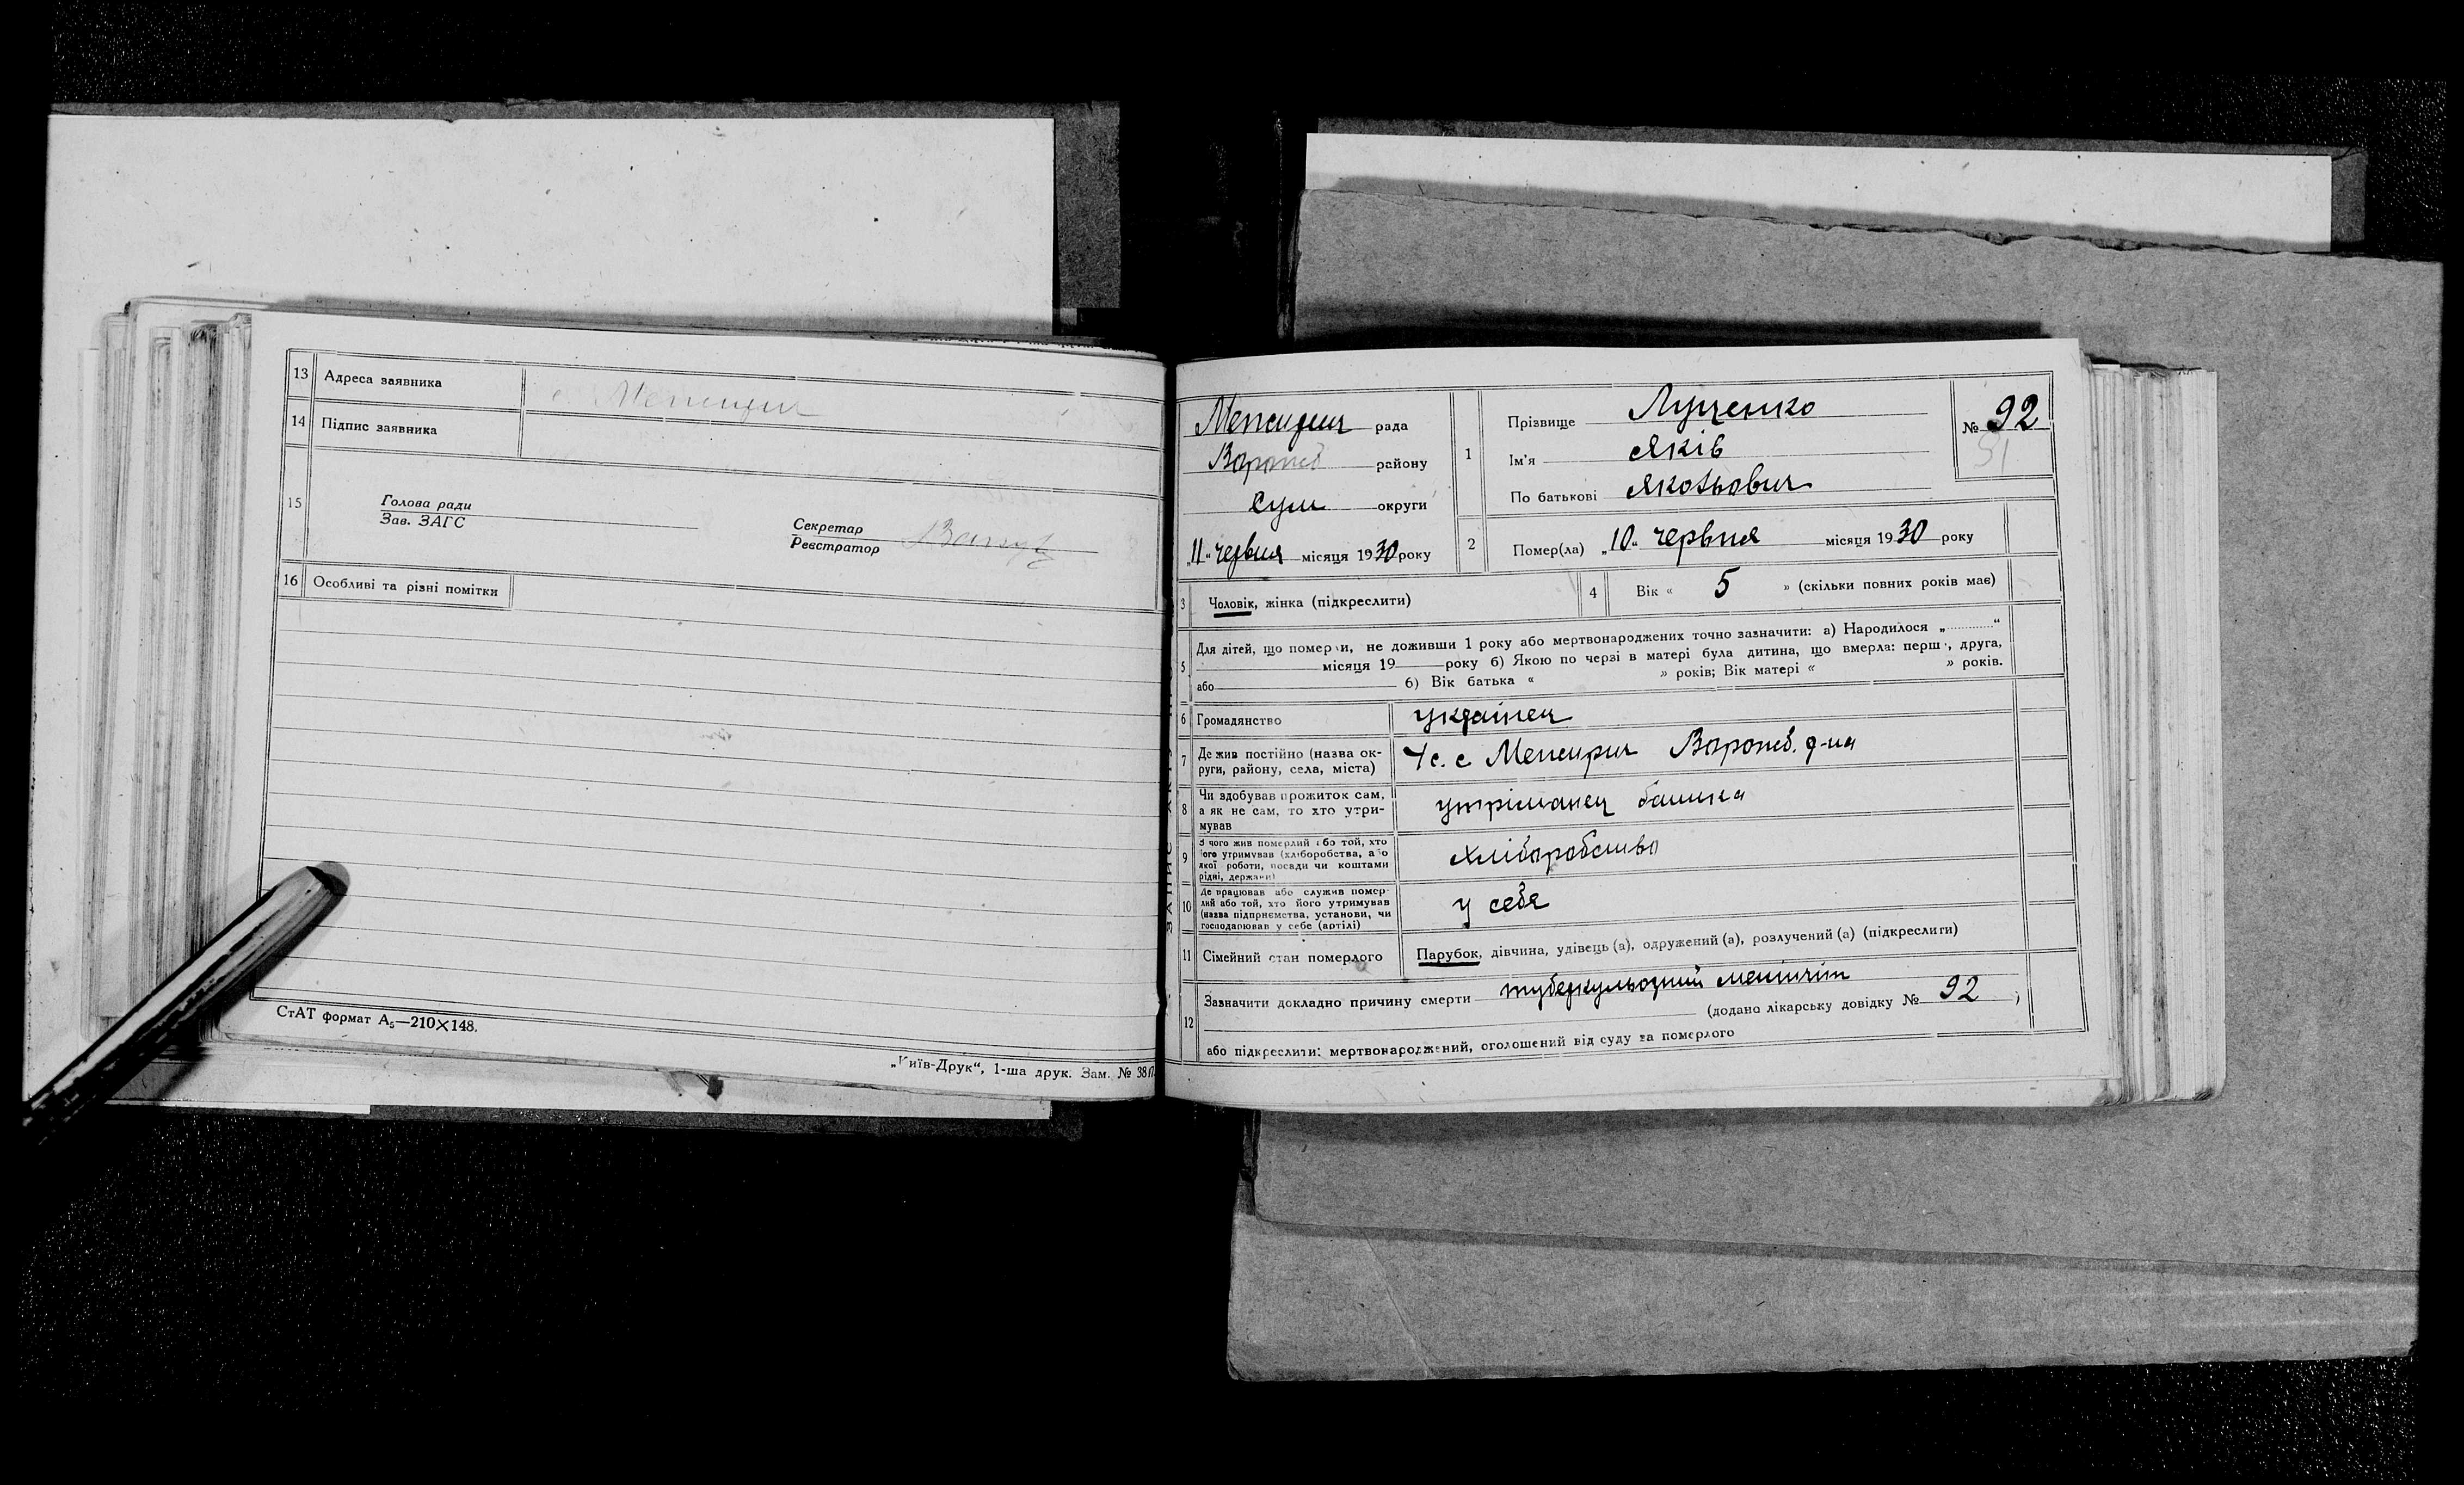 13 Адреса заявника с. Межирич
14 Підпис заявника
15 Голова ради
Зав. ЗАГС
Секретар
Реєстратор
16 Особливі та різні помітки
СтАТ формат А₅—210×148.
„Київ-Друк“, 1-ша друк. Зам. № 38
Межирич рада
Ворожб району
Сум округи
„11“ червня місяця 1930 року
1 Прізвище Луценко
Ім'я Яків
По батькові Якович
№ 92
91
2 Помер(ла) „10“ червня місяця 1930 року
3 Чоловік, жінка (підкреслити)
4 Вік « 5 » (скільки повних років має)
5 Для дітей, що померли, не доживши 1 року або мертвонароджених точно зазначити: а) Народилося „ “
місяця 19 року б) Якою по черзі в матері була дитина, що вмерла: перш , друга,
або б) Вік батька « » років; Вік матері « » років.
6 Громадянство українец
7 Де жив постійно (назва ок-
руги, району, села, міста) с. Межирич Ворожб. р-на
8 Чи здобував прожиток сам,
а як не сам, то хто утри-
мував утріманец батька
9 З чого жив померлий або той, хто
його утримував (хліборобства, або
якої роботи, посади чи коштами
рідні, держави) Хліборобство
10 Де працював або служив помер-
лий або той, хто його утримував
(назва підприємства, установи, чи
господарював у себе (артілі) у себя
11 Сімейний стан померлого Парубок, дівчина, удівець (а), одружений (а), розлучений (а) (підкреслити)
12 Зазначити докладно причину смерти туберкульозний менінгіт
(додано лікарську довідку № 92 ;
або підкреслити: мертвонароджений, оголошений від суду за померлого